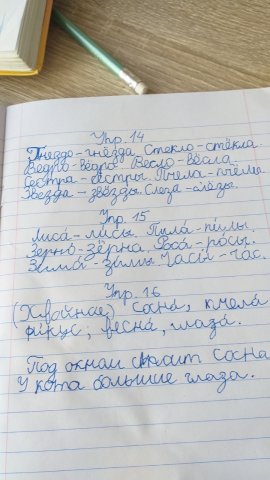 Упр. 14
Гнездо - гнёзда. Стекло - стёкла.
Ведро - вёдра. Весло - вёсла.
Сестра - сёстры. Пчела - пчёлы.
Звезда - звёзды. Слеза - слёзы.
Упр. 15
Лиса - лисы. Пила - пилы.
Зерно - зёрна. Роса - росы.
Зима - зимы. Часы - час.
Упр. 16
(Хвойная) Сосна,
фикус, весна, глаза.
Под окном стоит Сосна
У кота большие глаза.